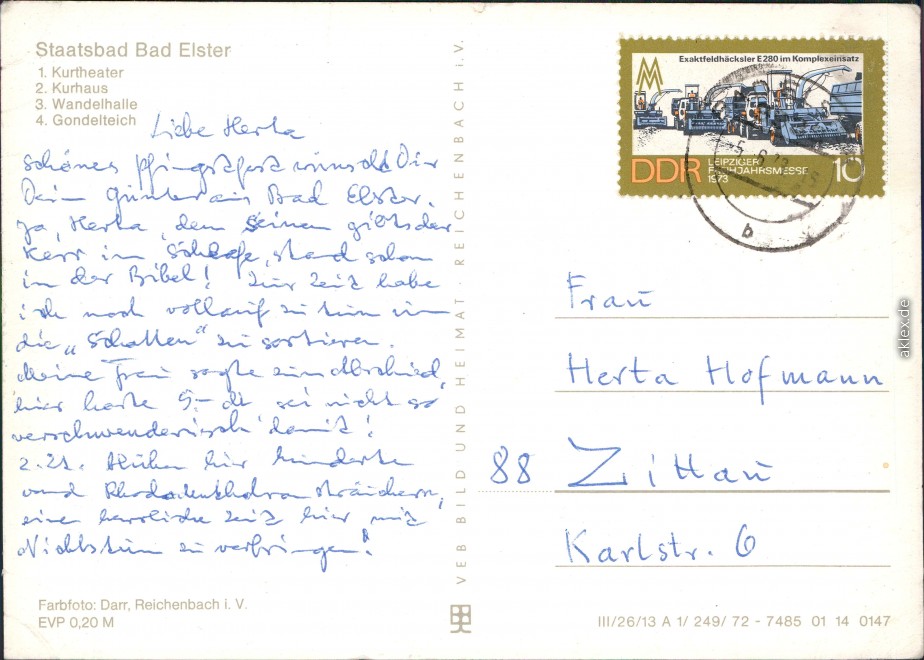 Staatsbad Bad Elster
1. Kurtheater
2. Kurhaus
3. Wandelhalle
4. Gondelteich
Liebe Herta
schönes Pfingstfest wünscht Dir
Dein Günter aus Bad Elster.
Ja, Herta, den Seinen gibts der
Herr im Schlafe, stand schon
in der Bibel! Zur Zeit habe
ich noch vollauf zu tun um
die „Schatten" zu sortieren.
Meine Frau sagte zum Abschied,
hier haste 5,- sei nicht so
verschwenderisch damit!
z. Zt. blühen hier hunderte
von Rhododendron sträuchern,
eine herrliche Zeit hier mit
Nichtstun zu verbringen!
Farbfoto: Darr, Reichenbach i. V.
EVP 0,20 M
VEB BILD UND HEIMAT · REICHENBACH i. V.
Exaktfeldhäcksler E 280 im Komplexeinsatz
DDR LEIPZIGER FRÜHJAHRSMESSE 1973 10
b
Frau
Herta Hofmann
88 Zittau
Karlstr. 6
III/26/13 A 1/ 249/ 72 - 7485 01 14 0147
aklex.de